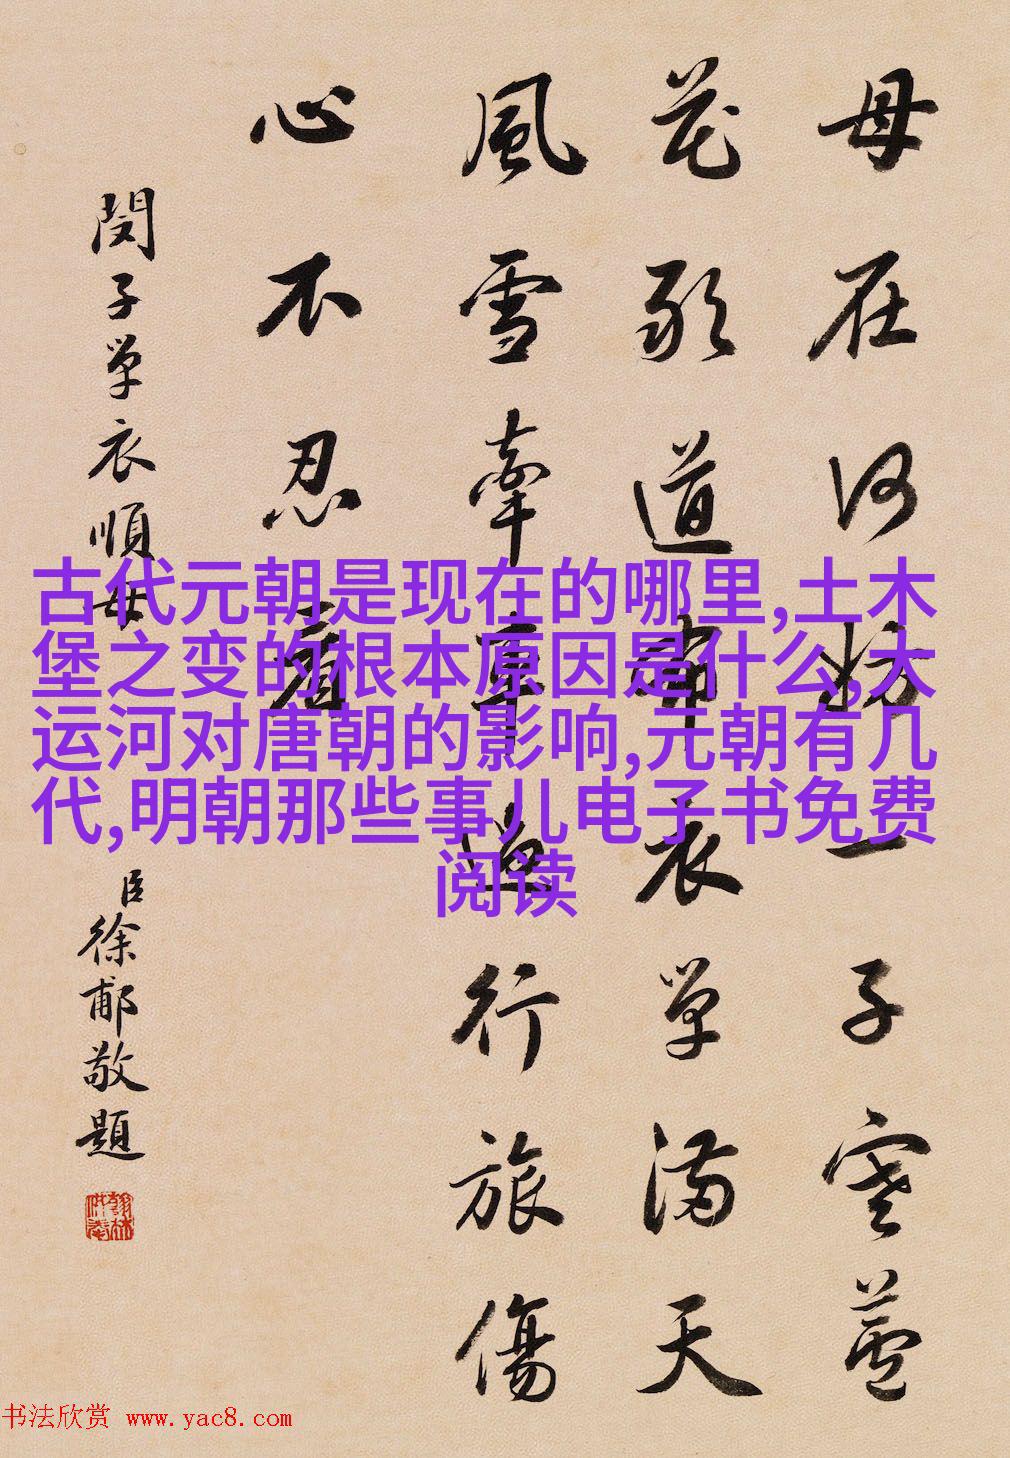 母在何妨一子寒蘆
花敢道布衣單滿天
風雪牽車行旅傷
心不忍看
閔子單衣順母
臣徐郙敬題
翰林供奉
古代元朝是现在的哪里,土木
堡之变的根本原因是什么,大
运河对唐朝的影响,元朝有几
代,明朝那些事儿电子书免费
阅读
书法欣赏 www.yac8.com